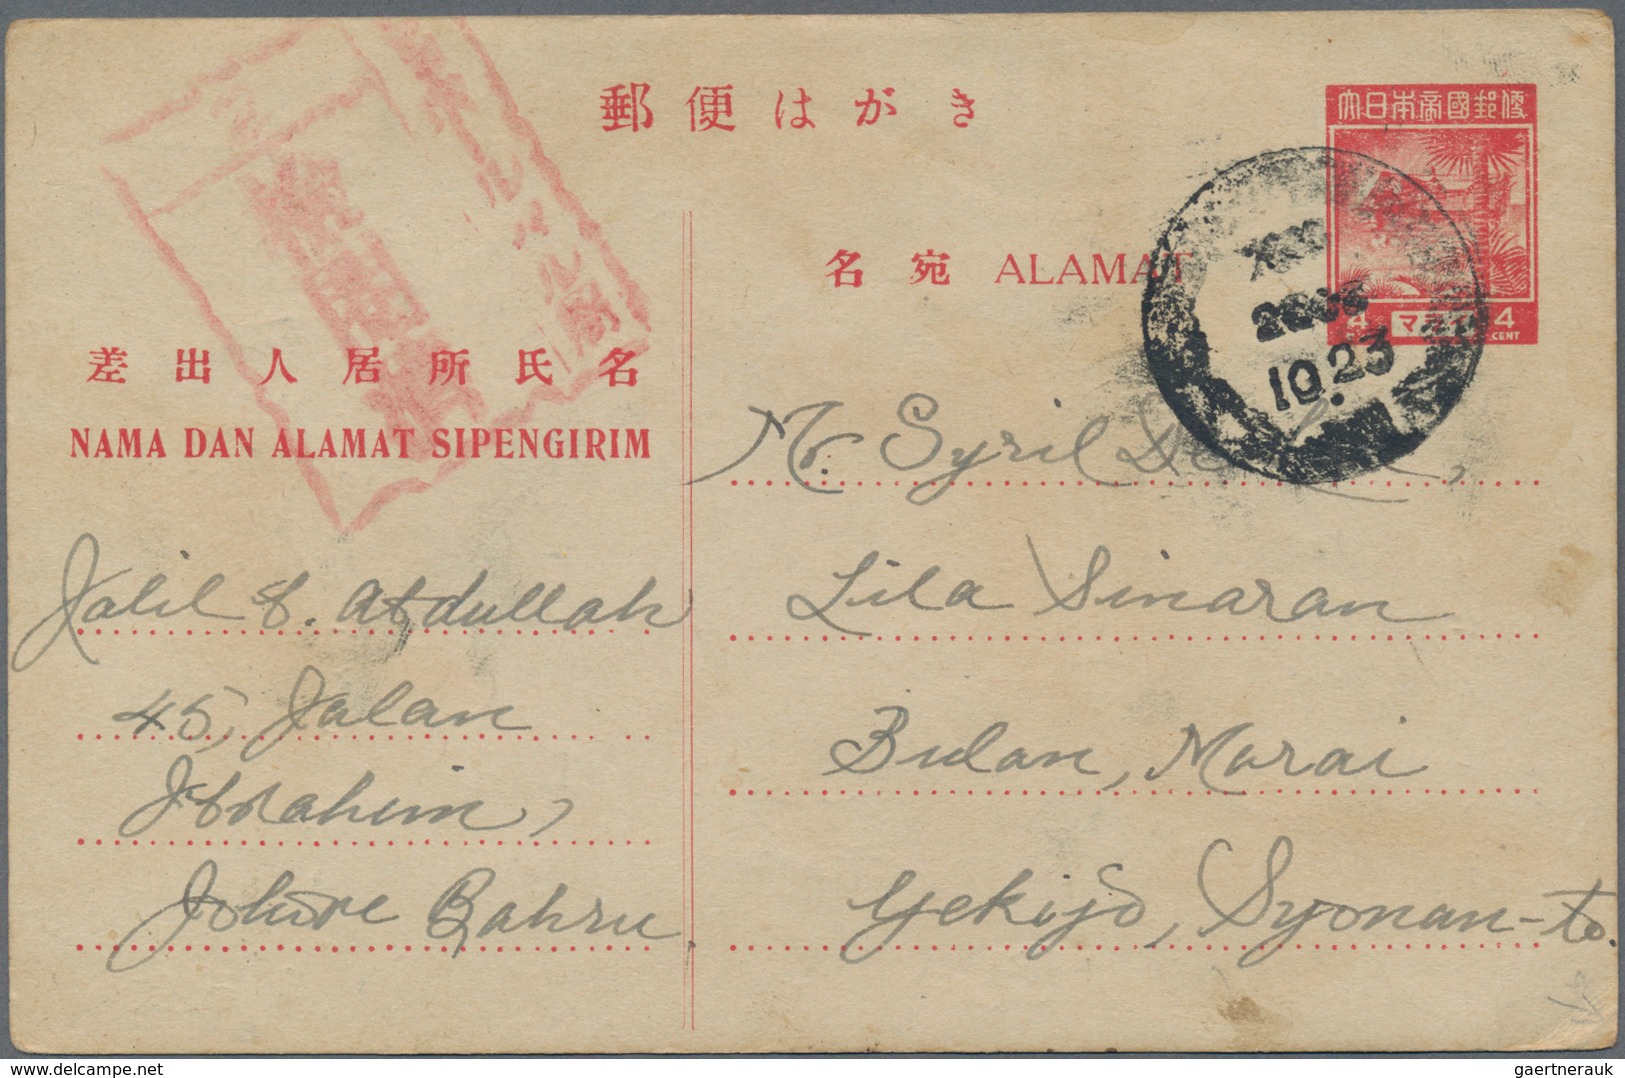 郵便はがき
大日本帝國郵便
マライ 4
CENT
名宛 ALAMAT
2603
10.23
差出人居所氏名
NAMA DAN ALAMAT SIPENGIRIM
Mr. Syril
Lila Sinaran
Bulan, Marai
Yekijō, Syonan-to.
Jalil b. Abdullah
45, Jalan
Ibrahim,
Johore Bahru
検閲済
oldthing.com
gaertnerauk